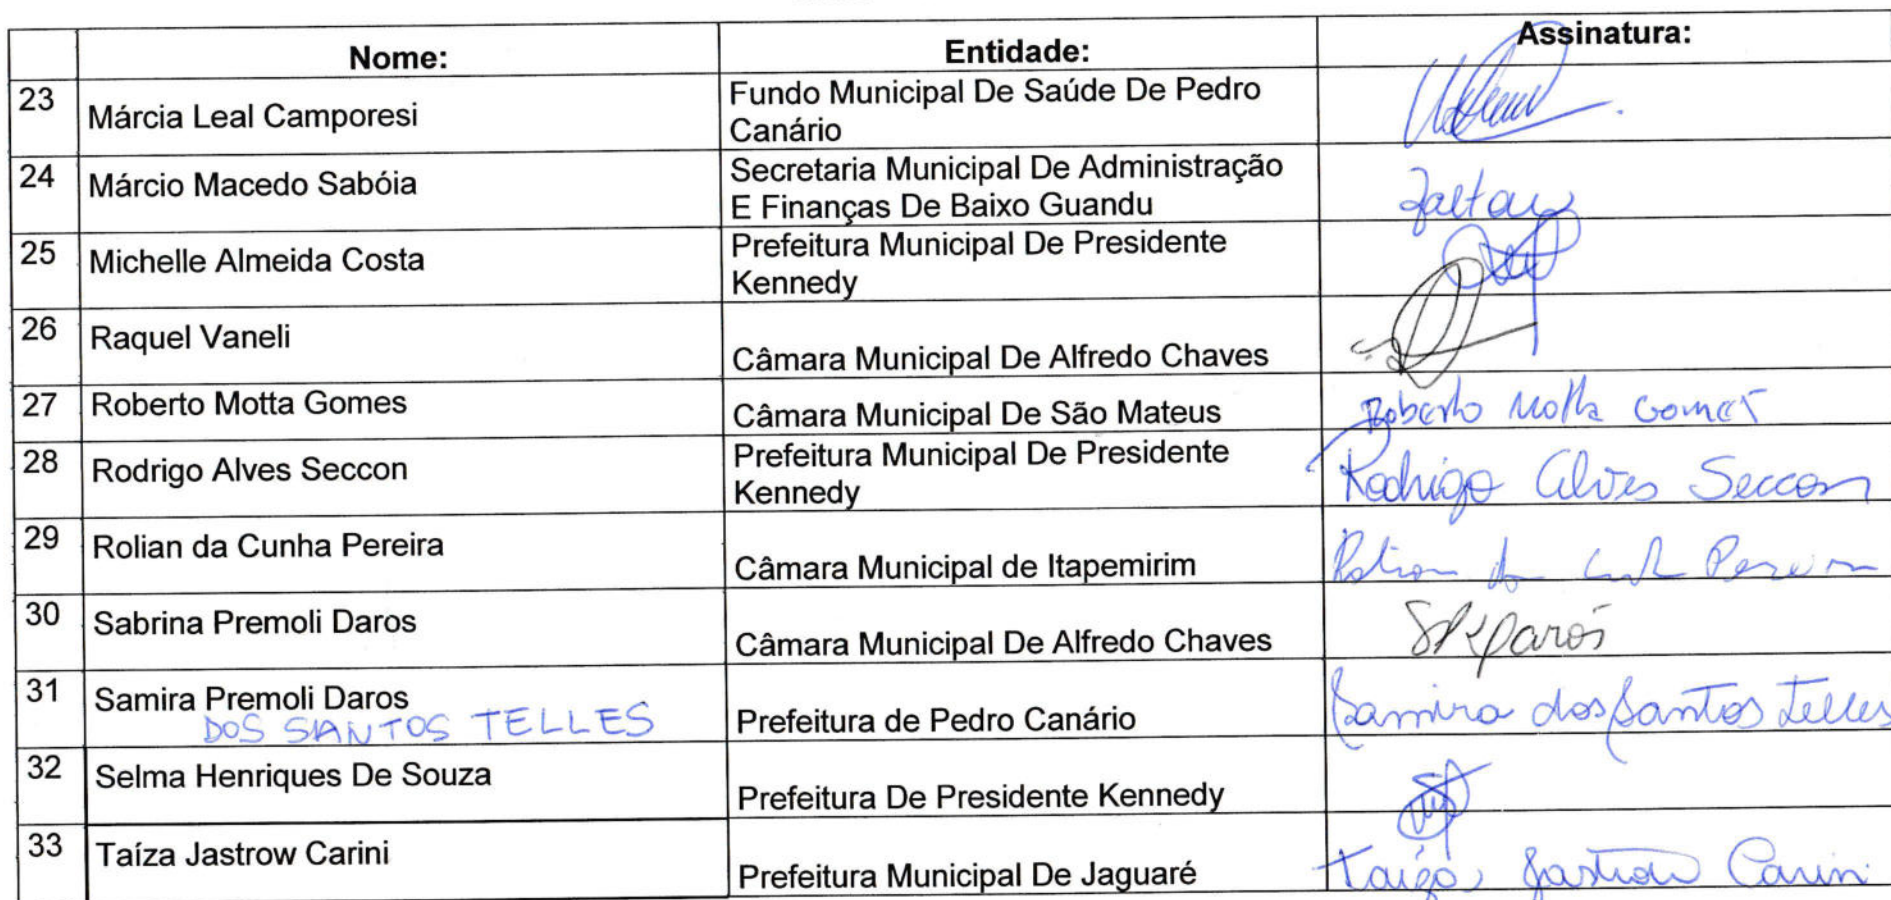 Nome: Entidade: Assinatura:
23 Márcia Leal Camporesi Fundo Municipal De Saúde De Pedro
Canário
24 Márcio Macedo Sabóia Secretaria Municipal De Administração
E Finanças De Baixo Guandu
25 Michelle Almeida Costa Prefeitura Municipal De Presidente
Kennedy
26 Raquel Vaneli Câmara Municipal De Alfredo Chaves
27 Roberto Motta Gomes Câmara Municipal De São Mateus Roberto Motta Gomes
28 Rodrigo Alves Seccon Prefeitura Municipal De Presidente
Kennedy Rodrigo Alves Seccon
29 Rolian da Cunha Pereira Câmara Municipal de Itapemirim Rolian da Cunha Pereira
30 Sabrina Premoli Daros Câmara Municipal De Alfredo Chaves
31 Samira Premoli Daros
DOS SANTOS TELLES Prefeitura de Pedro Canário Samira dos Santos Telles
32 Selma Henriques De Souza Prefeitura De Presidente Kennedy
33 Taíza Jastrow Carini Prefeitura Municipal De Jaguaré Taíza Jastrow Carini